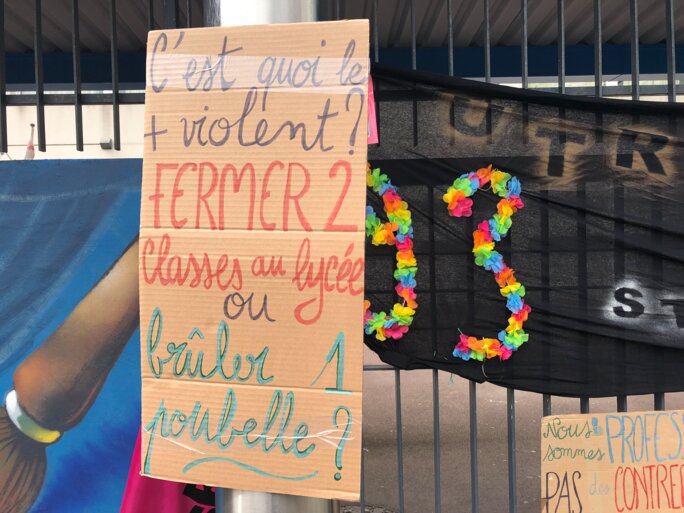 C'est quoi le
+ violent ?
FERMER 2
Classes au lycée
ou
brûler 1
poubelle ?
UTR
S
93
Nous
sommes
PROFESS
PAS des CONTRE